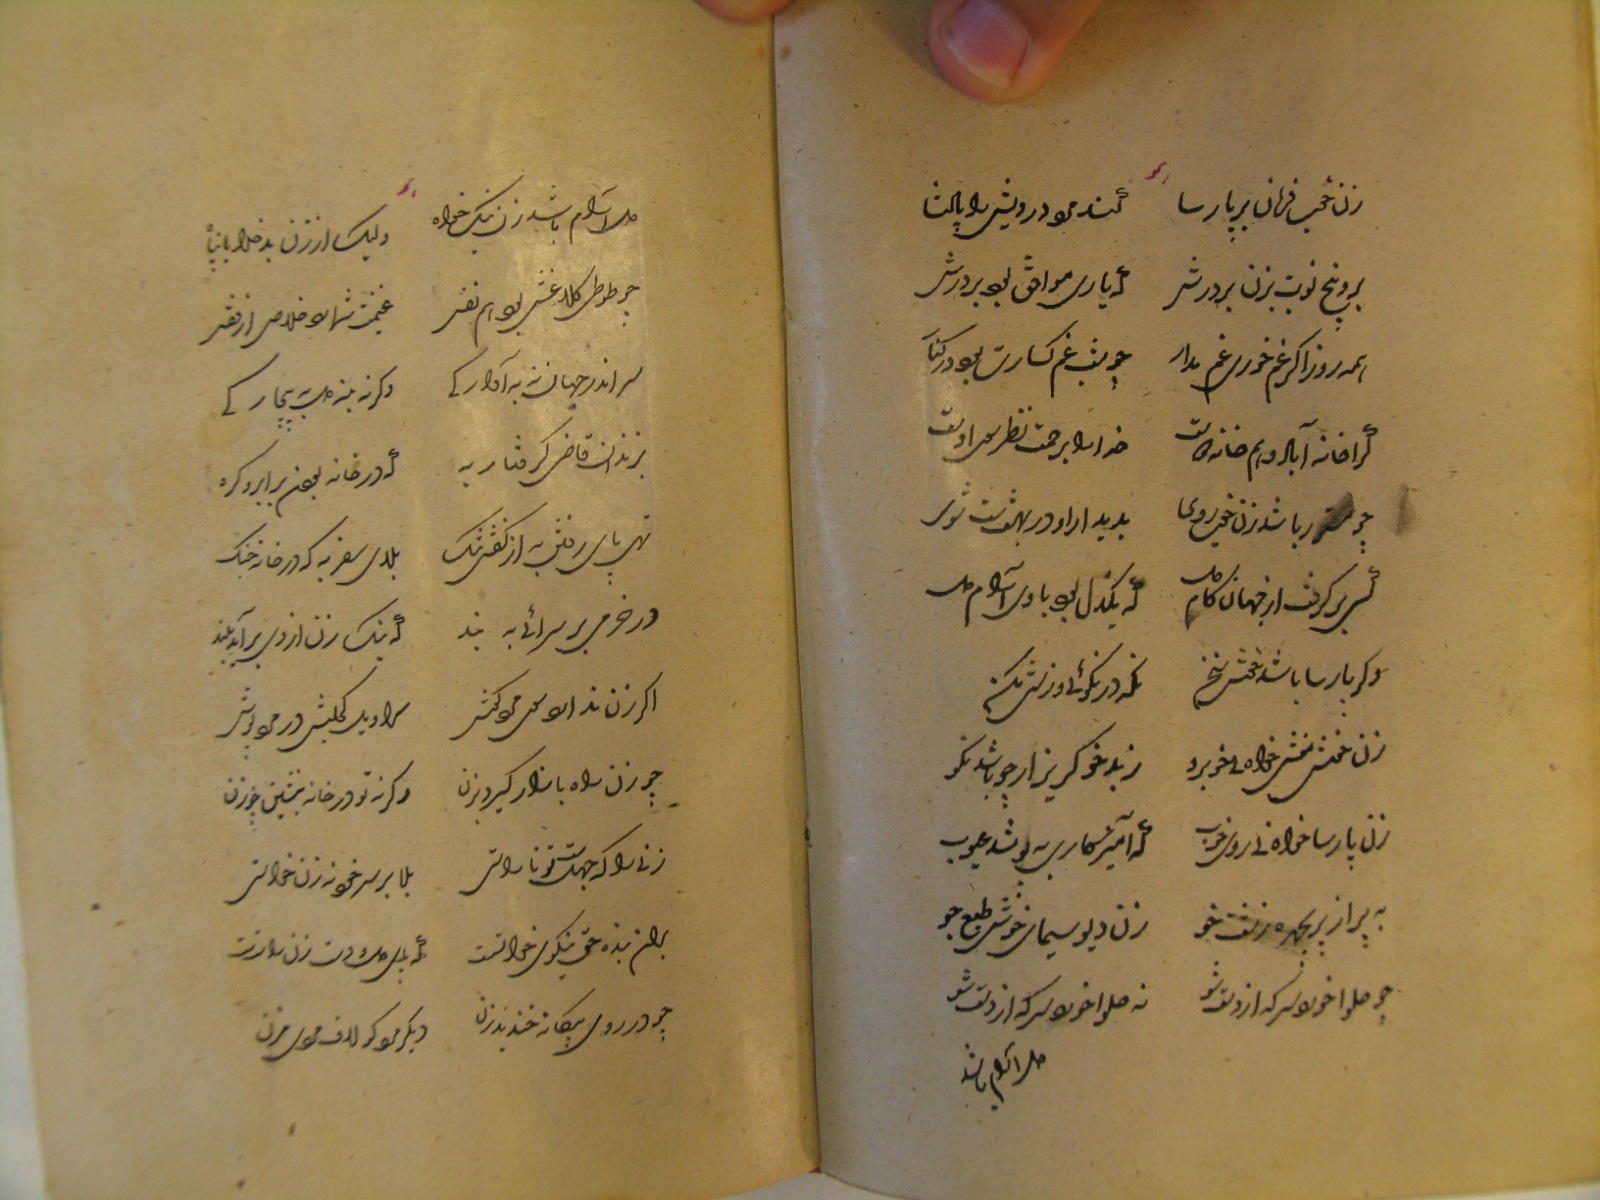 زن خوب فرمان بر پارسا کند مرد درویش را پادشا
برو پنج نوبت بزن بر درش که یاری موافق بود در برش
همه روز اگر غم خوری غم مدار چو شب غم گسارت بود در کنار
کرا خانه آباد و هم خانه دوست خدا را برحمت نظر سوی اوست
چو مستور باشد زن خوبروی بدیدار او در بهشتست شوی
کسی بر گرفت از جهان کام دل که یکدل بود با وی آرام دل
وگر پارسا باشد و خوش سخن نگه در نکوئی و زشتی مکن
زن خوش منش خواه نه خوبرو
زن پارسا خواه نه روی خوب که آمیزگاری بپوشد عیوب
به برد از پریچهره زشت خو زن دیو سیمای خوش طبع
چو حلوا خورد سرکه از دست شو نه حلوا خورد سرکه از دست شو
دل آرام باشد
دل آرام باشد زن نیک خواه ولیک از زن بد خدایا پناه
چو طوطی کلاغش بود هم نفس غنیمت شمارد خلاص از قفس
سر اندر جهان نه به آوارگی وگرنه بنه دل به بیچارگی
بزندان قاضی گرفتار به که در خانه بودن بر ابرو گره
تهی پای رفتن به از کفش تنگ بلای سفر به که در خانه جنگ
در خرمی بر سرائی به بند که بانگ زن از وی بر آید بلند
اگر زن ندارد سوی مرد گوش سراویل کحلیش در مرد پوش
چو زن راه بازار گیرد بزن وگرنه تو در خانه بنشین چو زن
زنی را که جهلست و ناراستی بلا بر سر خود نه زن خواستی
بران بنده حق نیکوی خواستست که با وی دل و دست زن راستست
چو در روی بیگانه خندید زن دگر مرد گو لاف مردی مزن